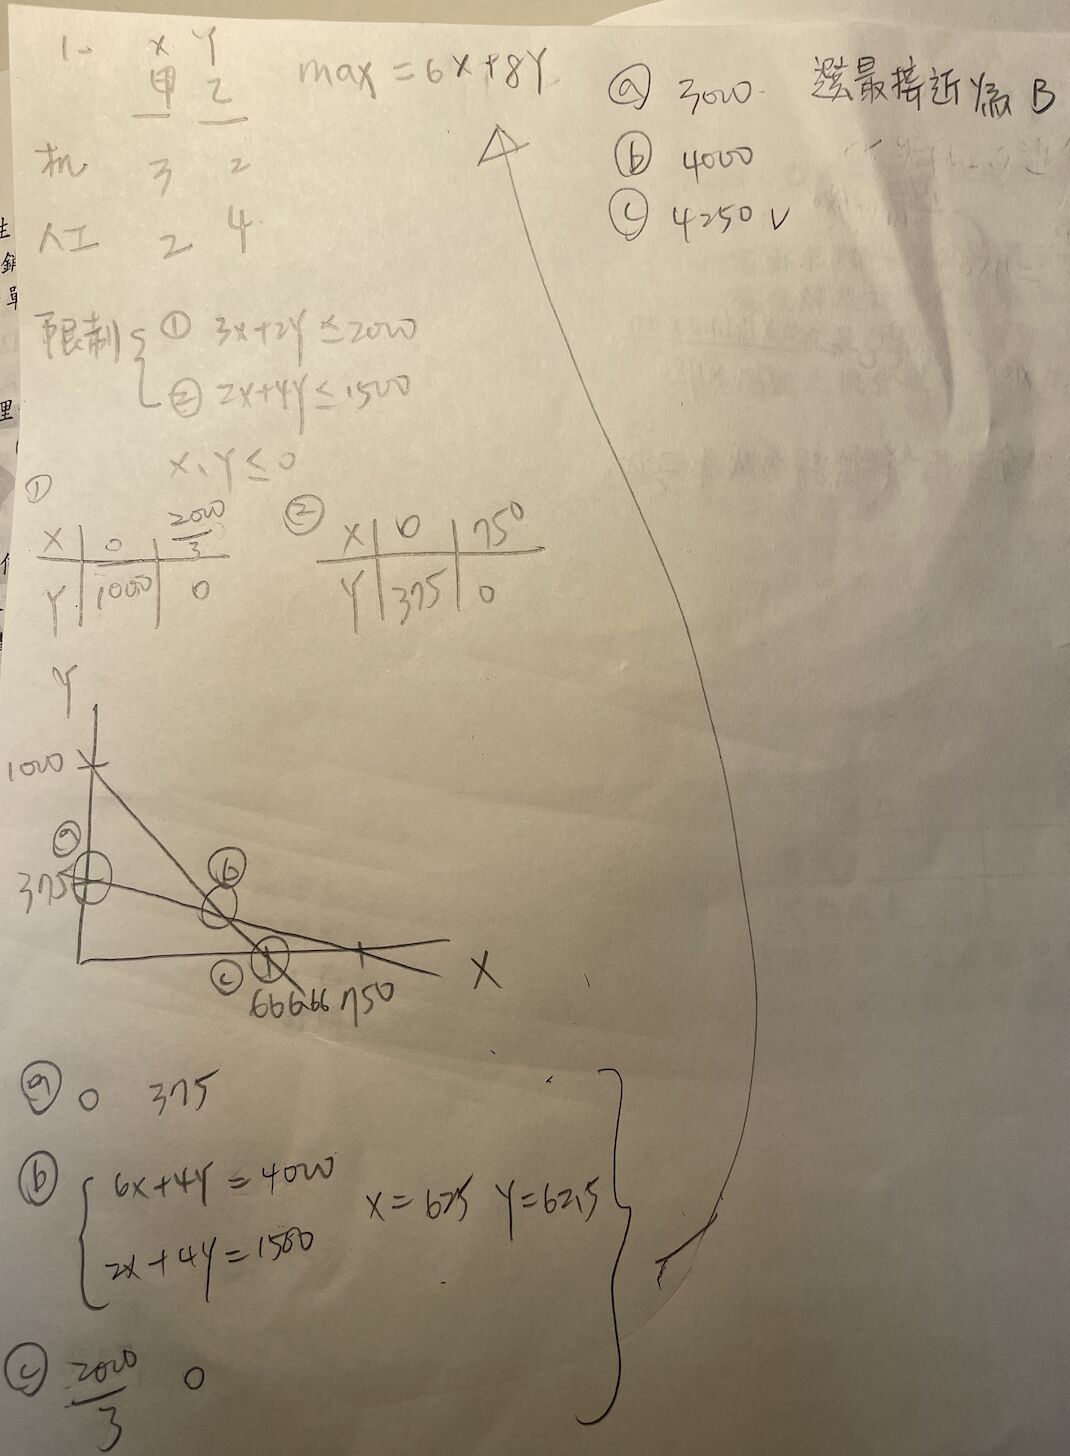 1.
X Y
甲 乙
max = 6X+8Y
机 3 2
人工 2 4
限制 ① 3X+2Y ≤ 2000
② 2X+4Y ≤ 1500
X、Y ≤ 0
①
X 0 2000/3
Y 1000 0
②
X 0 750
Y 375 0
Y
1000
ⓐ
375
ⓑ
ⓒ
666.66 750
X
ⓐ 0 375
ⓑ 6X+4Y = 4000
2X+4Y = 1500
X = 625 Y = 62.5
ⓒ 2000/3 0
ⓐ 3000 選最接近為 B
ⓑ 4000
ⓒ 4250 V